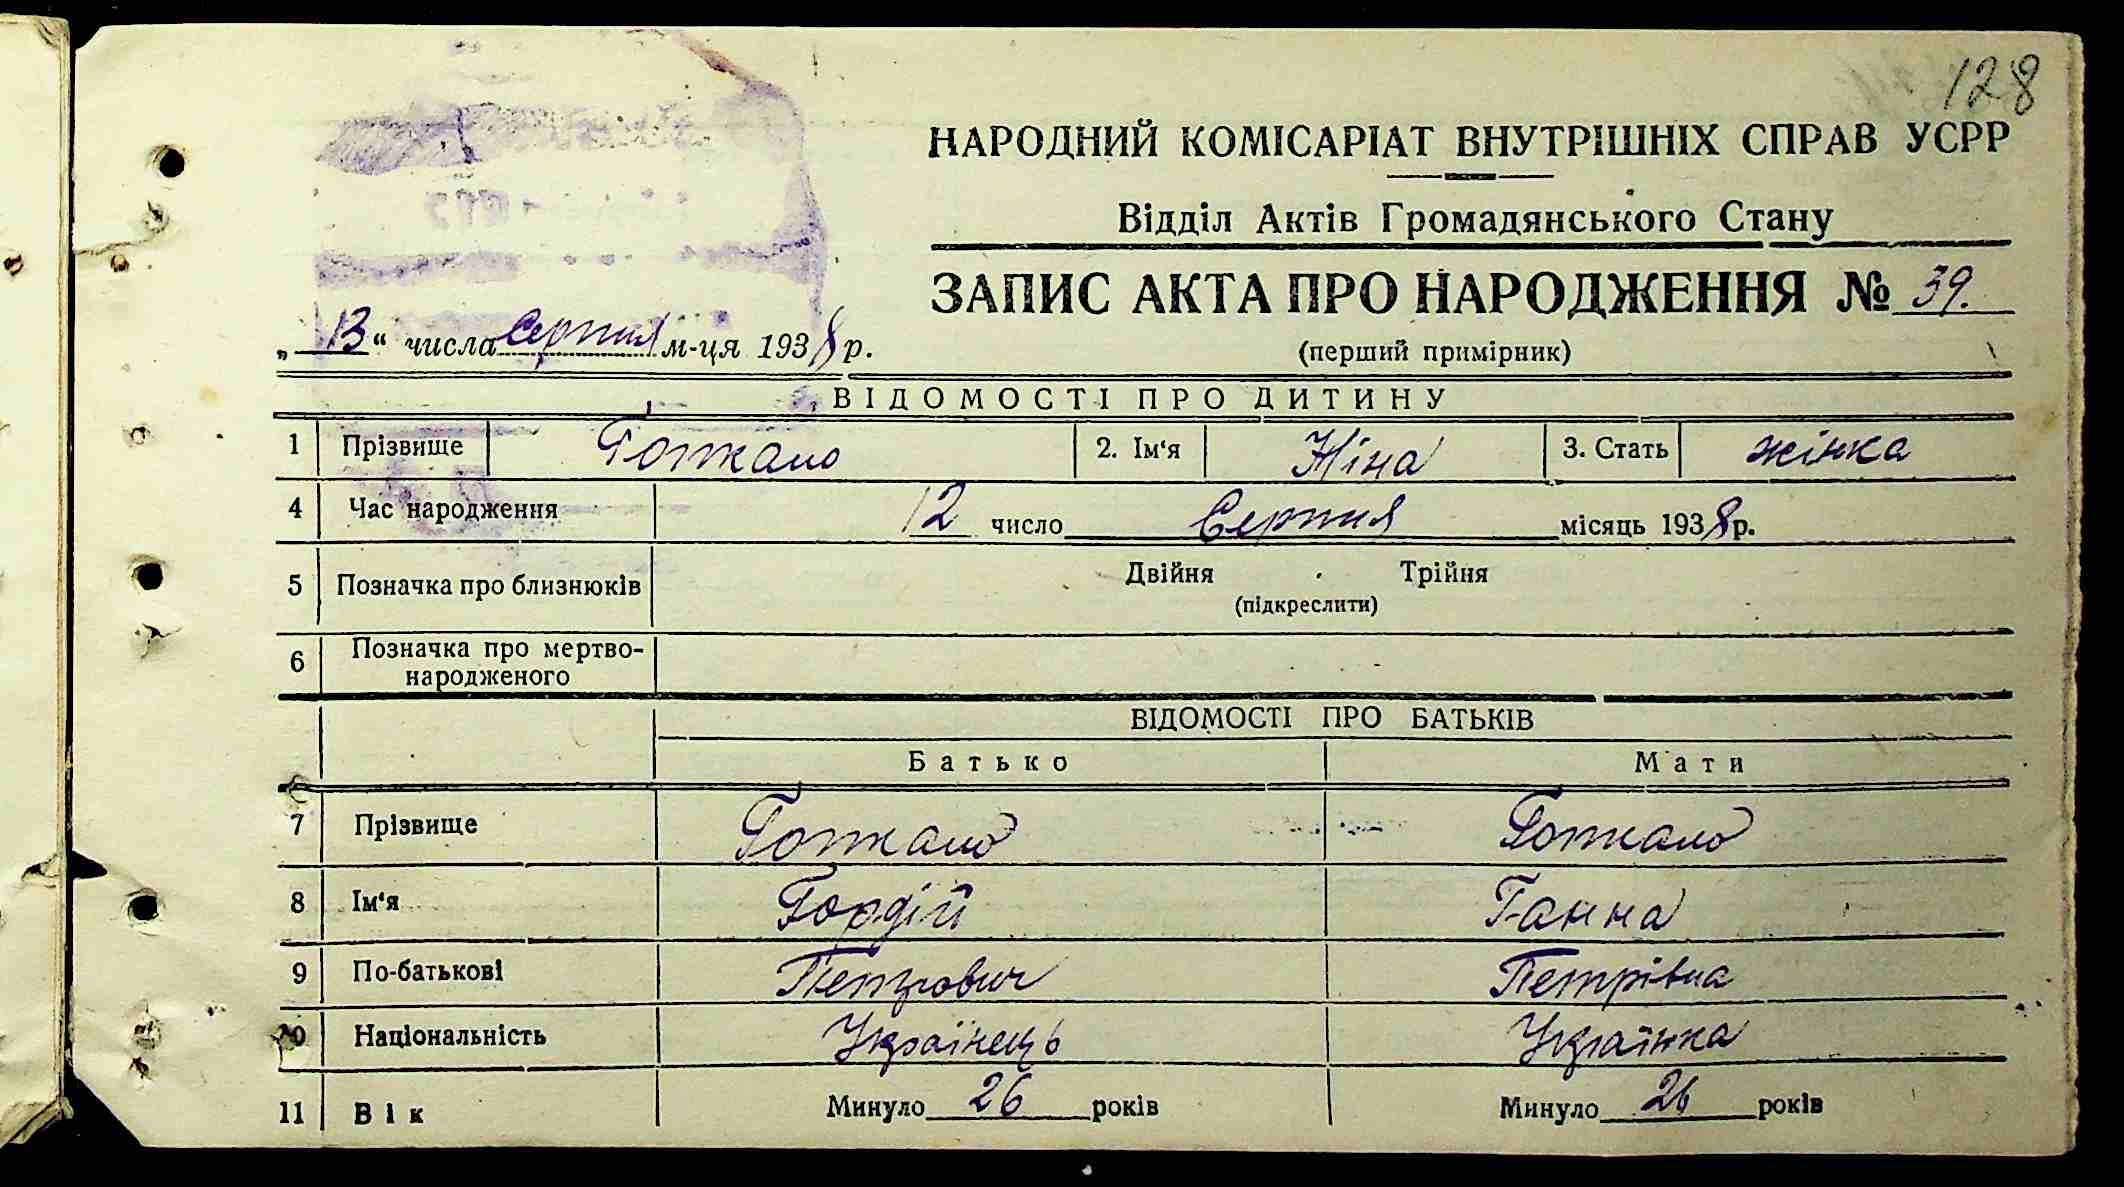 128
НАРОДНИЙ КОМІСАРІАТ ВНУТРІШНІХ СПРАВ УСРР
Відділ Актів Громадянського Стану
ЗАПИС АКТА ПРО НАРОДЖЕННЯ № 39.
„13“ числа Серпня м-ця 1938 р.
(перший примірник)
ВІДОМОСТІ ПРО ДИТИНУ
1 Прізвище Гопкало 2. Ім‘я Ніна 3. Стать жінка
4 Час народження 12 число Серпня місяць 1938 р.
5 Позначка про близнюків Двійня Трійня
(підкреслити)
6 Позначка про мертво-
народженого
ВІДОМОСТІ ПРО БАТЬКІВ
Батько Мати
7 Прізвище Гопкало Гопкало
8 Ім‘я Гордій Ганна
9 По-батькові Петрович Петрівна
10 Національність Українець Українка
11 Вік Минуло 26 років Минуло 26 років